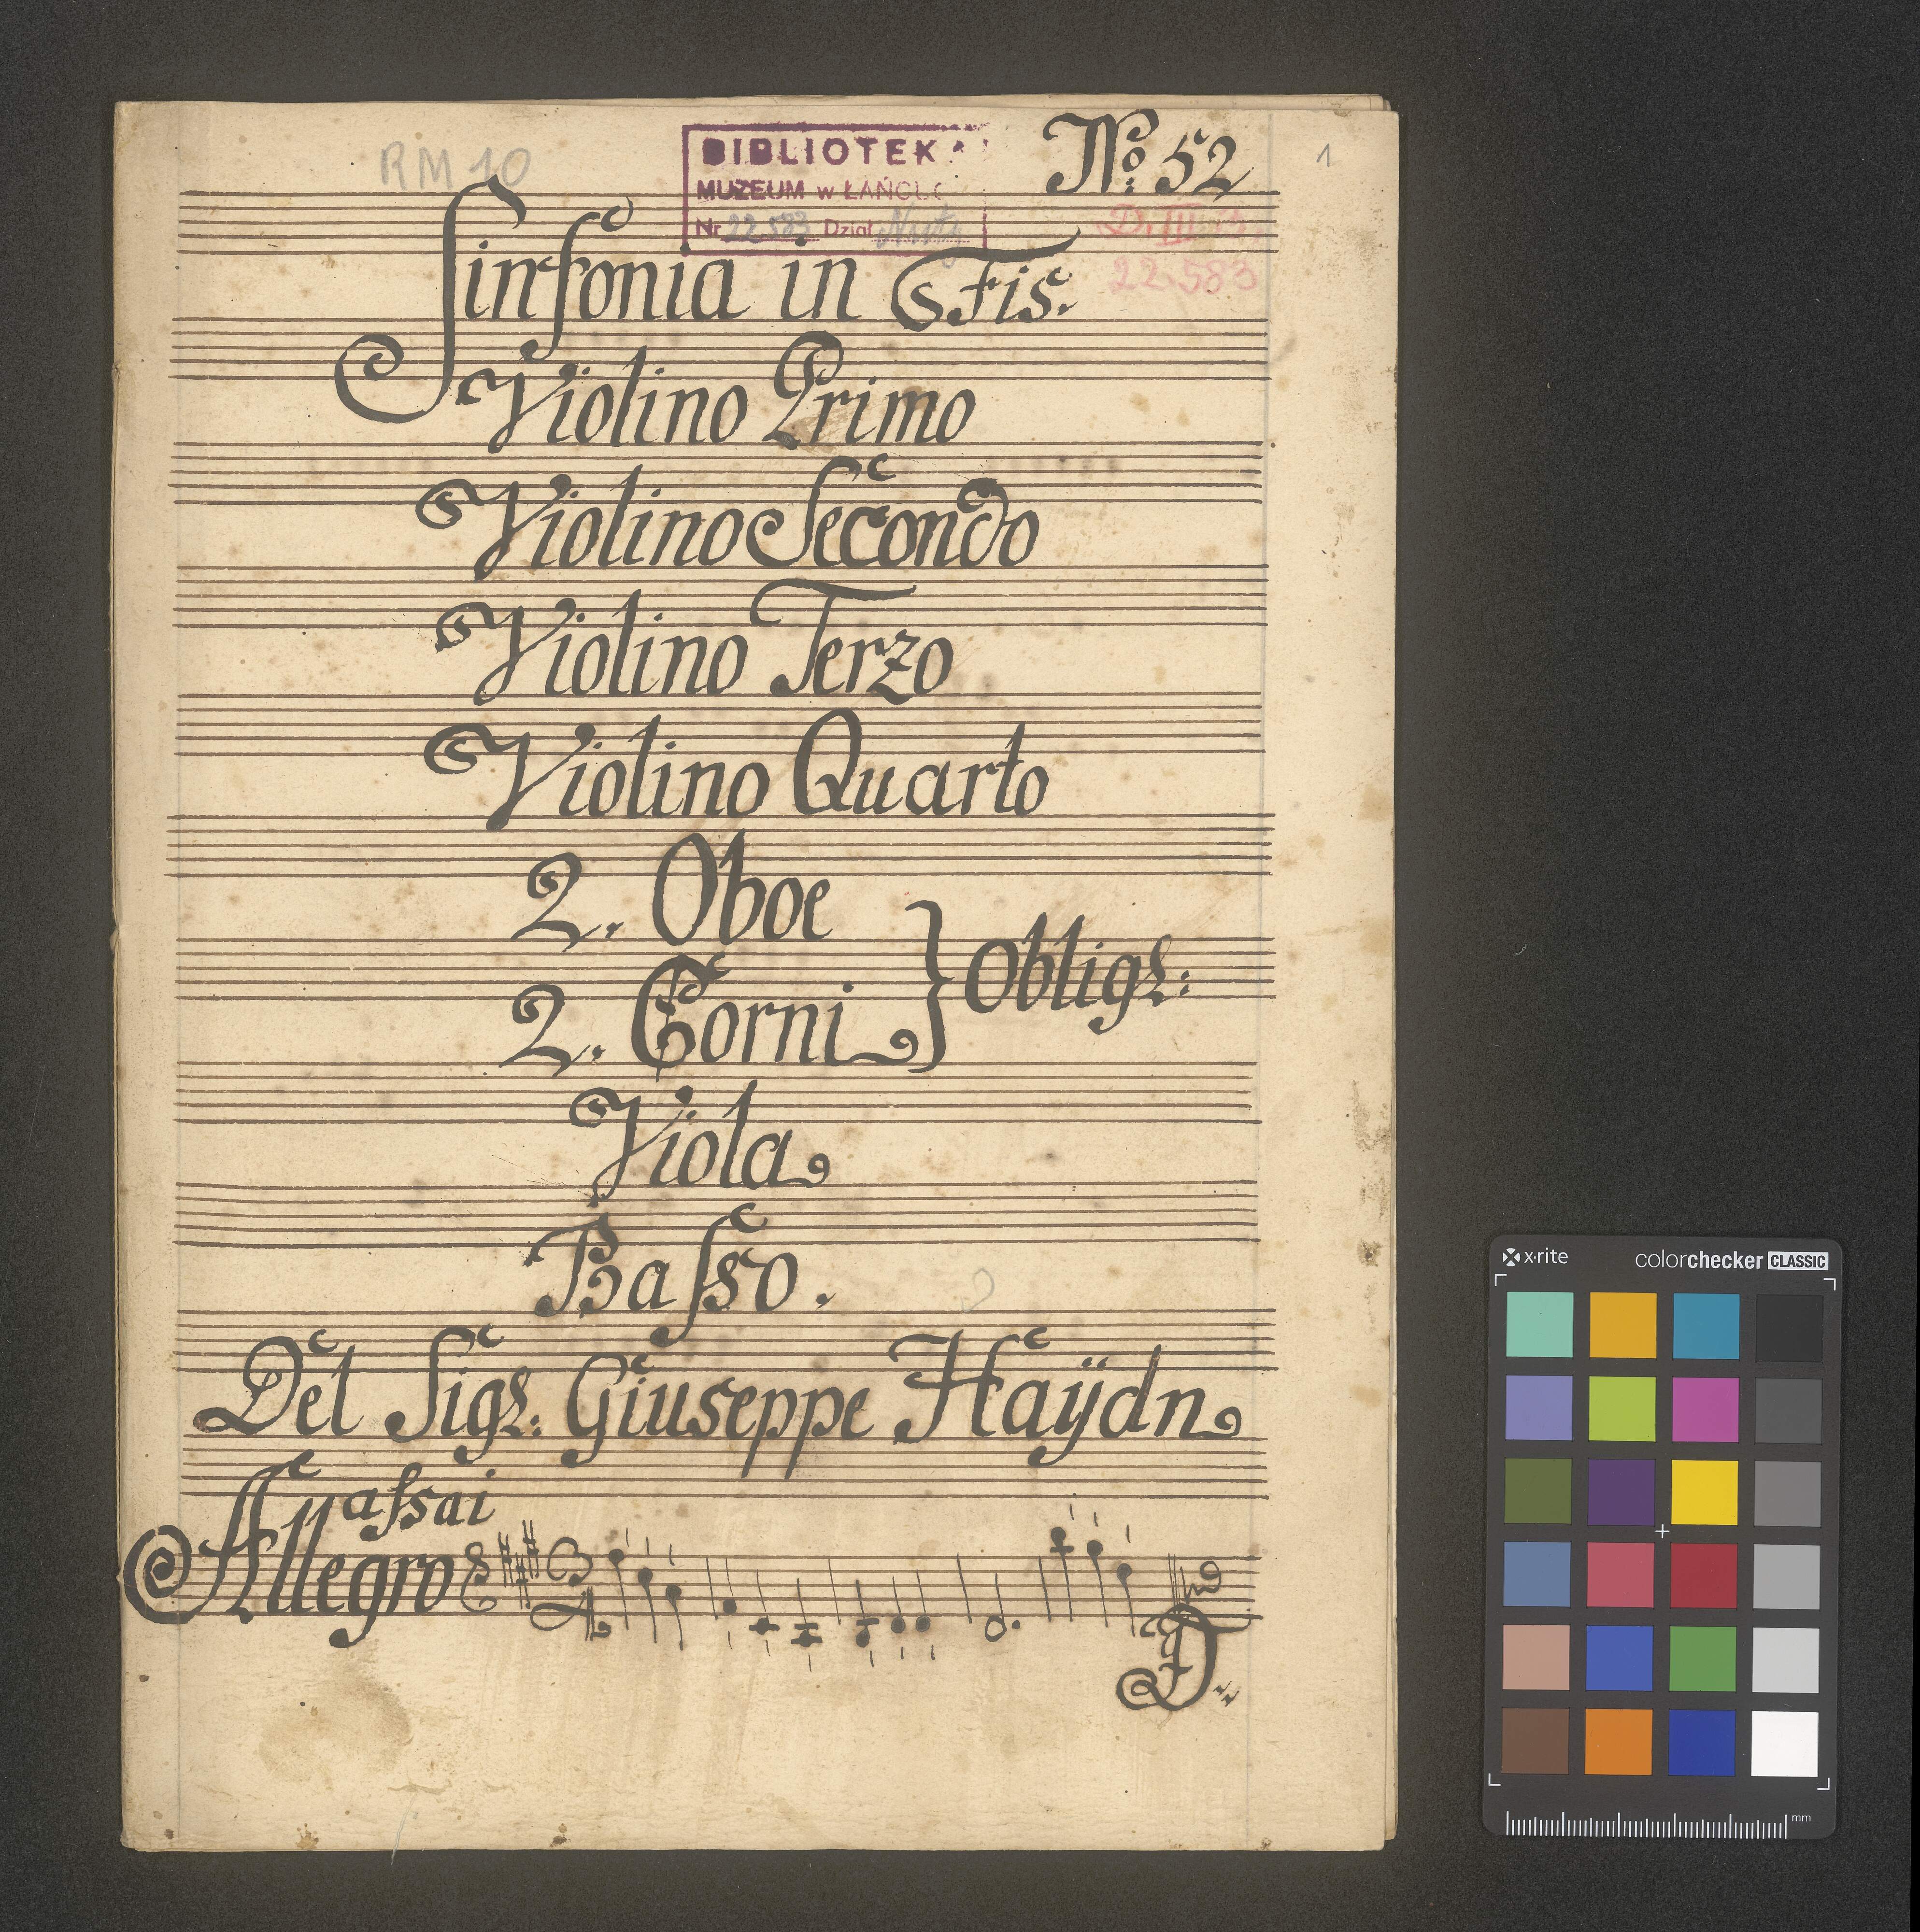 RM 10
BIBLIOTEKA
MUZEUM w ŁAŃCU
Nr 22583 Dział Nuty
No: 52
1
D. III
22.583
Sinfonia in Fis.
Violino Primo
Violino Secondo
Violino Terzo
Violino Quarto
2. Oboe
2. Corni
Oblig:
Viola
Basso.
Del Sigr: Giuseppe Haÿdn
Allegro assai
D
x·rite
colorchecker CLASSIC
mm